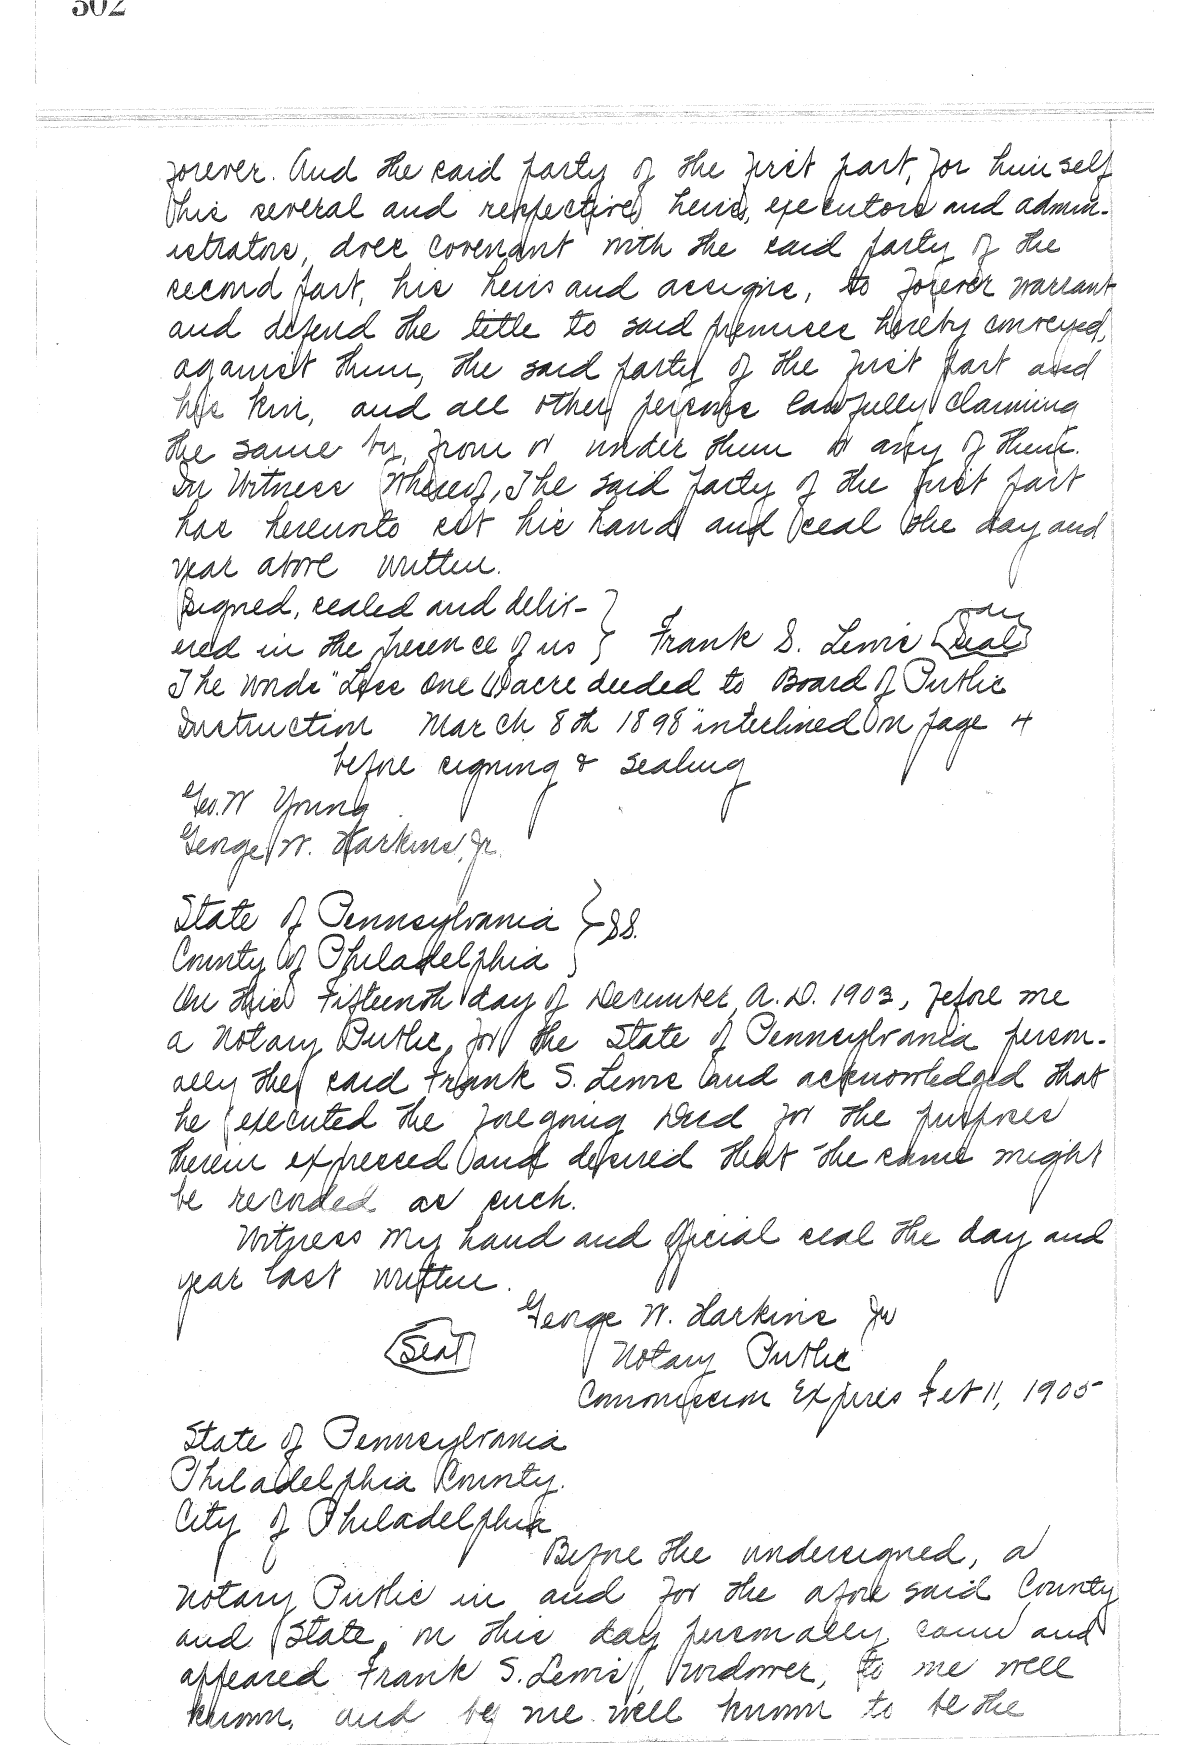 302
forever. And the said party of the first part, for himself
his several and respective heirs, executors and admin-
istrators, does covenant with the said party of the
second part, his heirs and assigns, to forever warrant
and defend the title to said premises hereby conveyed,
against them, the said party of the first part and
his kin, and all other persons lawfully claiming
the same by, from or under them or any of them.
In Witness Whereof, The said party of the first part
has hereunto set his hand and seal the day and
year above written.
Signed, sealed and deliv-
ered in the presence of us } Frank S. Lewis (Seal)
The words "Less One (1) acre deeded to Board of Public
Instruction March 8th 1898" interlined on page 4
before signing & sealing
Geo. W Young
George W. Harkins, Jr.
State of Pennsylvania } SS.
County of Philadelphia
On this Fifteenth day of December, A.D. 1903, before me
a Notary Public, for the State of Pennsylvania person-
ally the said Frank S. Lewis and acknowledged that
he executed the foregoing Deed for the purposes
therein expressed and desired that the same might
be recorded as such.
Witness my hand and official seal the day and
year last written.
George W. Harkins Jr
(Seal) Notary Public
Commission Expires Feb 11, 1905
State of Pennsylvania
Philadelphia County.
City of Philadelphia
Before the undersigned, a
Notary Public in and for the afore said County
and State, on this day personally came and
appeared Frank S. Lewis, widower, to me well
known, and by me well known to be the